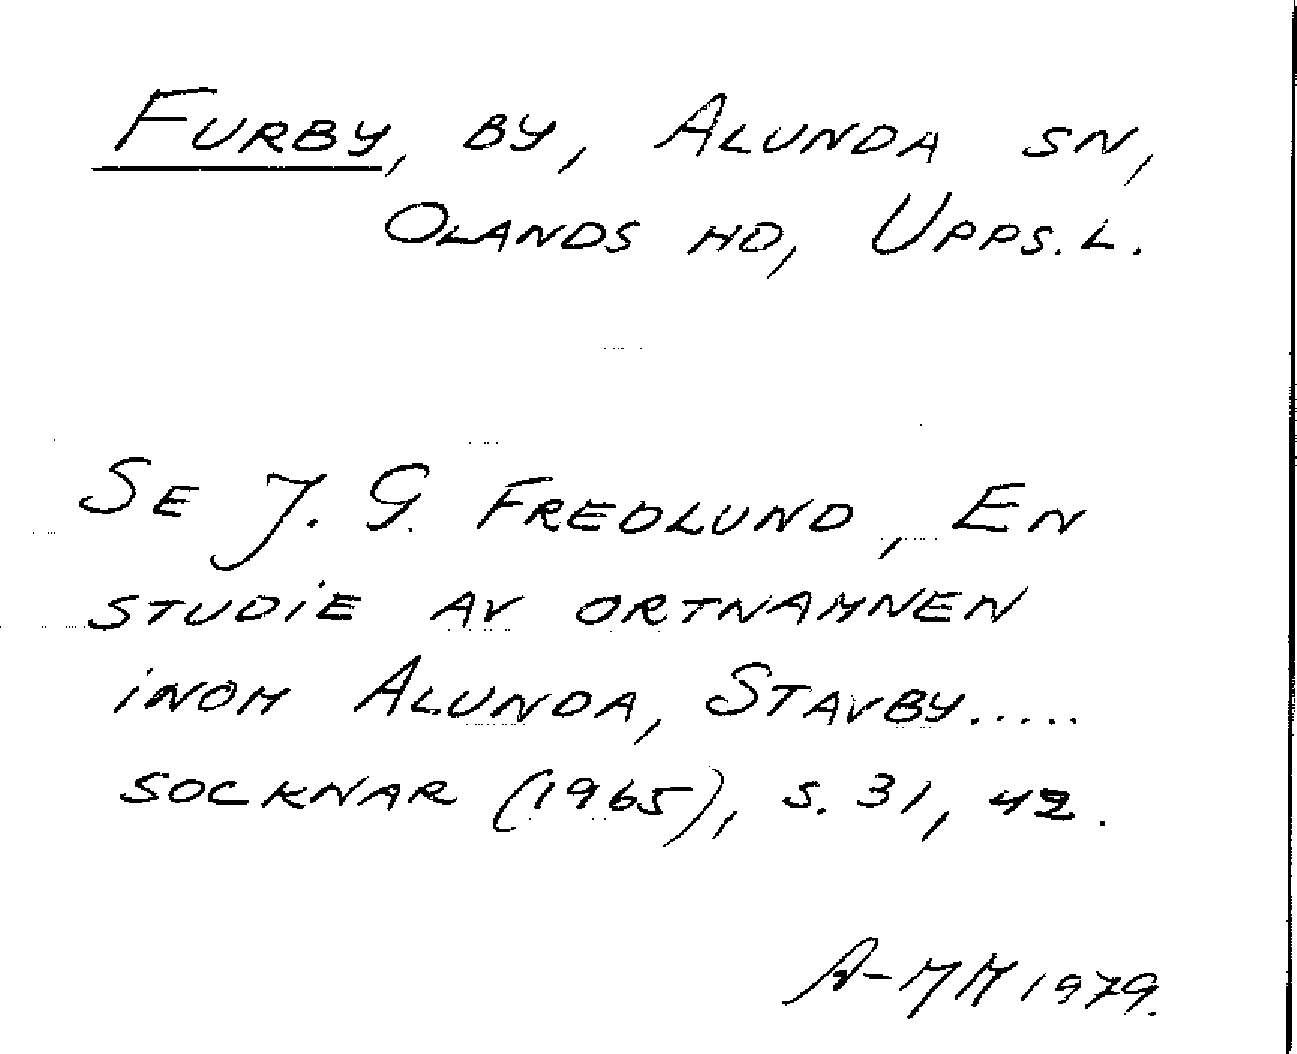 FURBY, BY, ALUNDA SN,
OLANDS HD, UPPS. L.
SE J. G. FREDLUND, EN
STUDIE AV ORTNAMNEN
INOM ALUNDA, STAVBY.....
SOCKNAR (1965), S. 31, 42.
A-MM 1979.